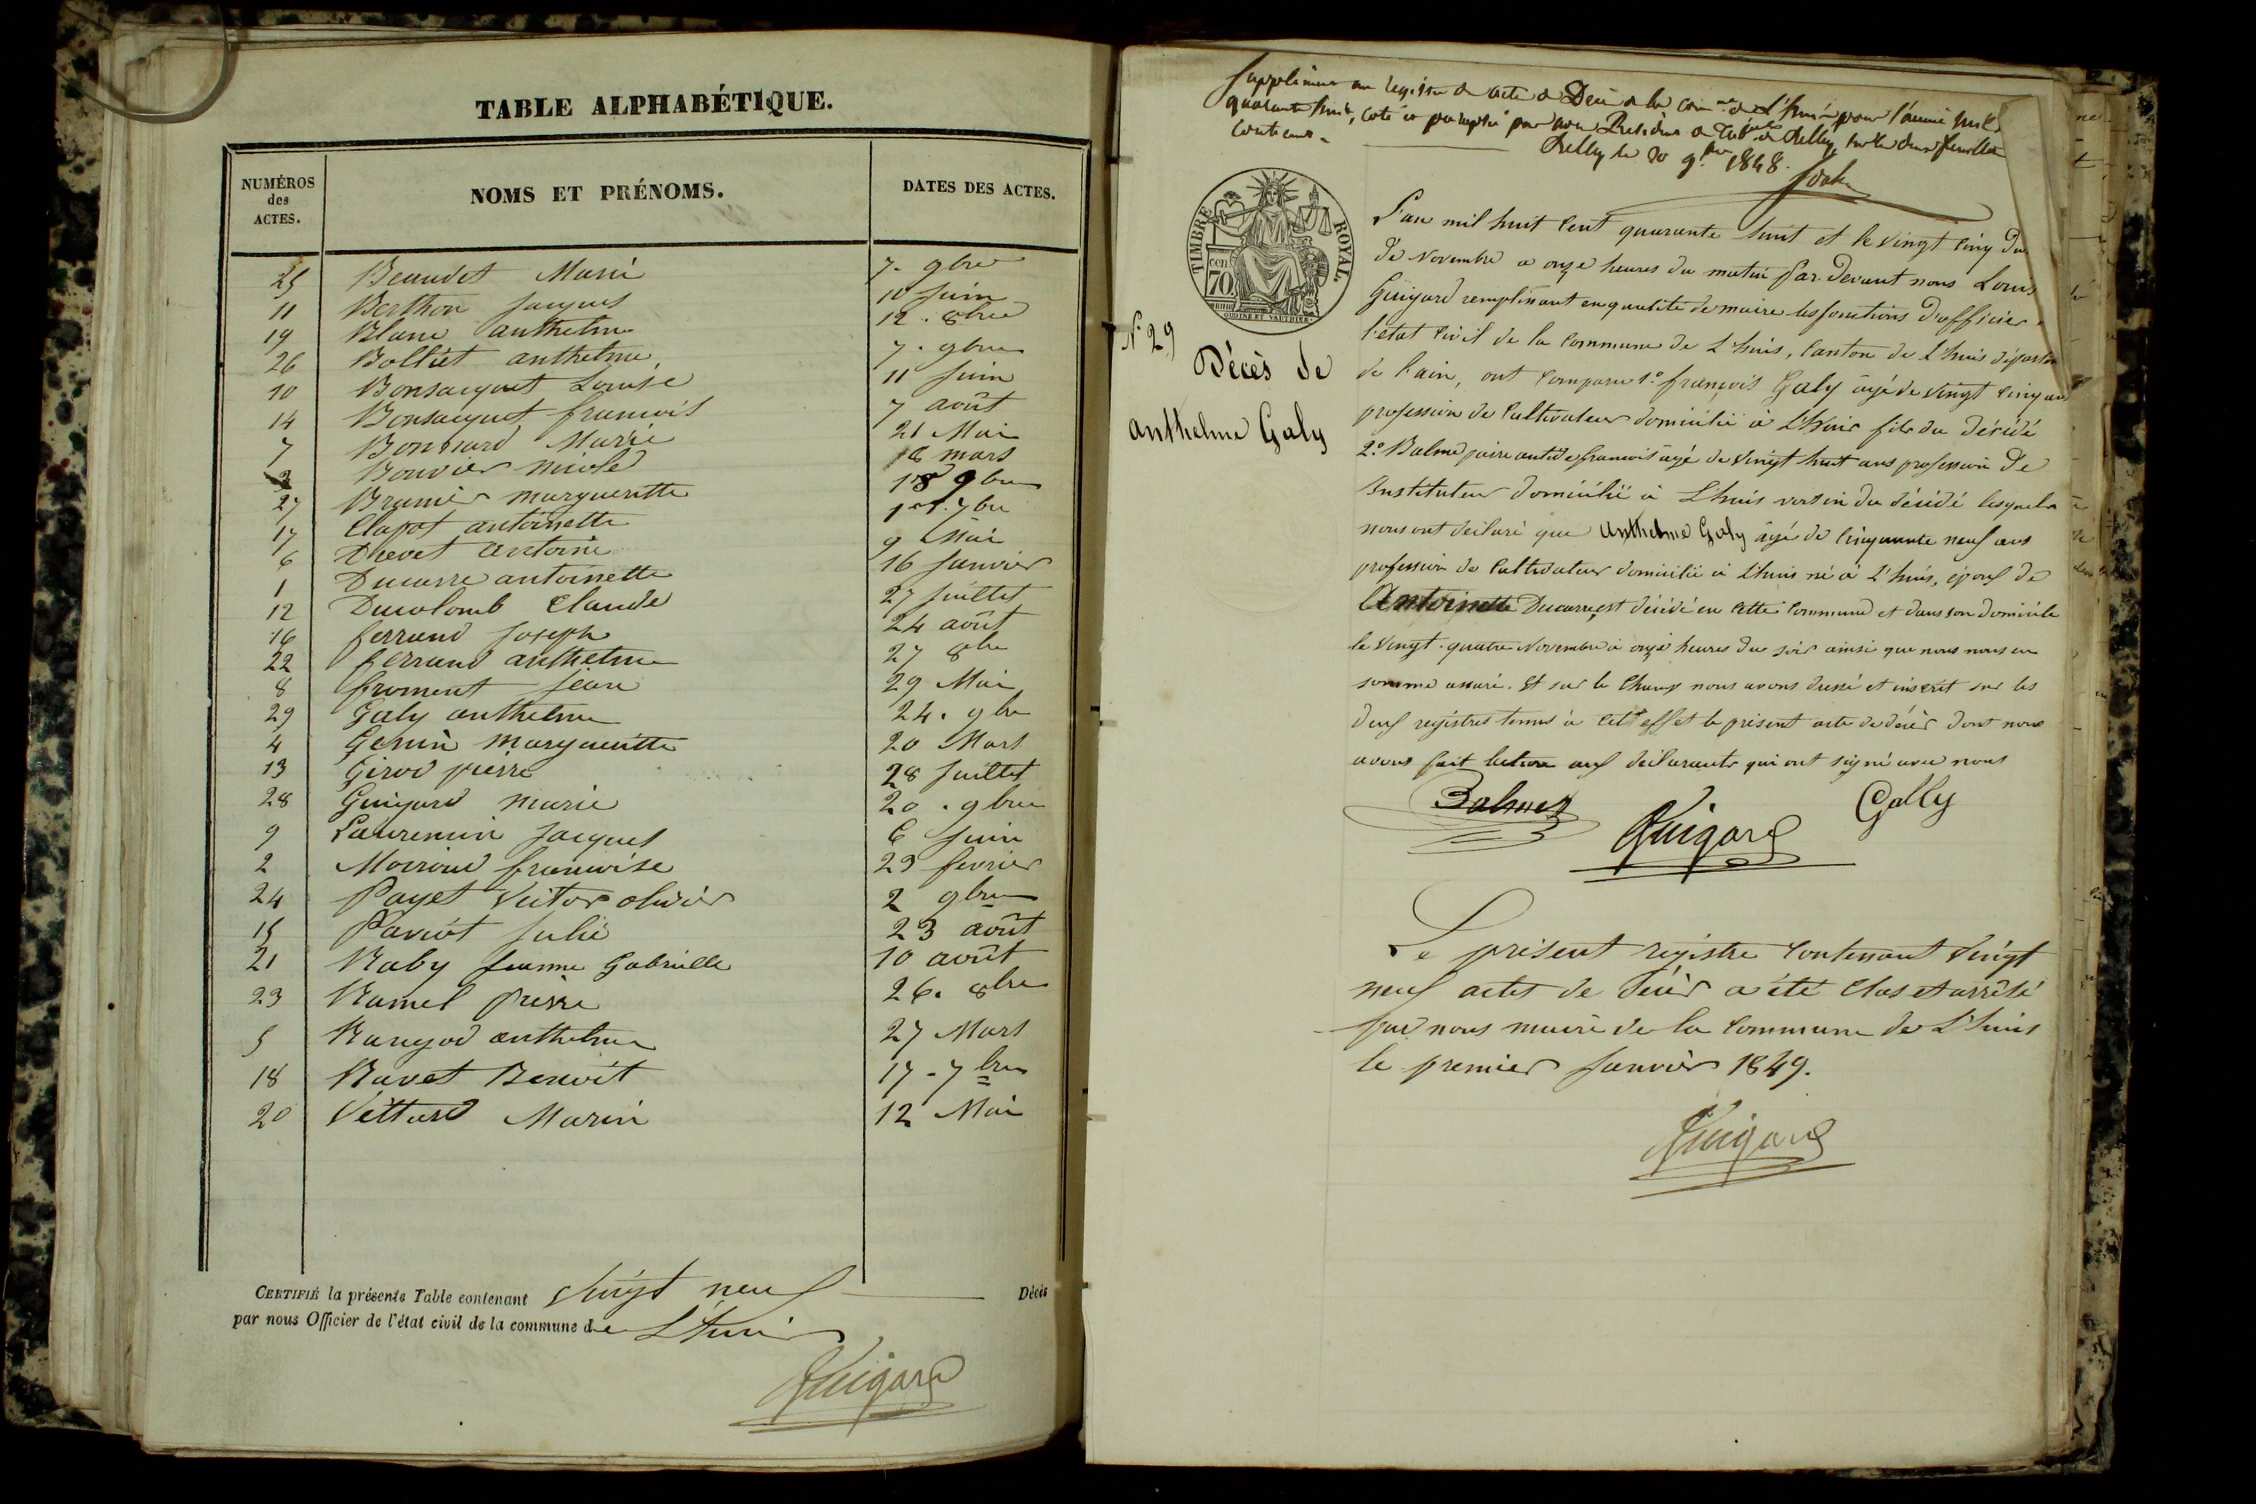 TABLE ALPHABÉTIQUE.
NUMÉROS des ACTES. NOMS ET PRÉNOMS. DATES DES ACTES.
25 Beaudet Marie 7. 9bre
11 Berthon Jacques 10 Juin
19 Blanc anthelme 12. 8bre
26 Bolliet anthelme 7. 9bre
10 Bonsacquet Louise 11 Juin
14 Bonsacquet françois 7 août
7 Bonnard Marie 21 Mai
3 Bouvier nicole 8 mars
27 Brunier margueritte 18 9bre
17 Clapot antoinette 1er. 7bre
6 Drevet antoine 9 Mai
1 Ducarre antoinette 16 Janvier
12 Ducolomb Claude 27 Juillet
16 ferrand Joseph 24 août
22 ferrand anthelme 27 8bre
8 froment Jean 29 Mai
29 Galy anthelme 24. 9bre
4 Genin margueritte 20 Mars
13 Girod pierre 28 Juillet
28 Guigard marie 20. 9bre
9 Laurencin Jacques 6 Juin
2 françoise 23 fevrier
24 Payet Victor olivier 2 9bre
15 Paviot Julie 23 août
21 Raby Jeanne Gabrielle 10 août
23 Ramel pierre 26. 8bre
5 Rangod anthelme 27 Mars
18 Ravet Benoit 17. 7bre
20 Vettard Marin 12 Mai
CERTIFIÉ la présente Table contenant Vingt neuf Décès
par nous Officier de l'état civil de la commune de L'huis
Guigard
Supplément au registre des actes de Décès de la comne de L'huis pour l'année mil
quarante huit, coté et paraphé par nous Président du de Belley,
contenu.
Belley le 20 9bre 1848.
TIMBRE ROYAL.
cen 70
N° 29
Décès de
anthelme Galy
L'an mil huit cent quarante huit et le vingt cinq du
de Novembre a onze heures du matin Par devant nous Louis
Guigard remplissant en qualité de maire les fonctions d'officier
l'état Civil de la Commune de L'huis, Canton de L'huis départem
de l'ain, ont comparu 1° françois Galy âgé de vingt cinq ans
profession de Cultivateur domicilié à L'huis fils du décédé
2° Balme françois âgé de vingt huit ans profession de
Instituteur domicilié à L'huis voisin du décédé lesquels
nous ont déclaré que anthelme Galy âgé de cinquante neuf ans
profession de Cultivateur domicilié à L'huis né à L'huis, époux de
Antoinette Ducarre, est décédé en cette Commune et dans son domicile
le vingt-quatre Novembre à onze heures du soir ainsi que nous nous en
somme assuré. Et sur le Champ nous avons dressé et inscrit sur les
deux registres tenus à cet effet le présent acte de décès dont nous
avons fait lecture aux déclarants qui ont signé avec nous
Balme Guigard Gally
Le présent registre contenant vingt
neuf actes de Décès a été Clos et arrêté
par nous maire de la Commune de L'huis
le premier Janvier 1849.
Guigard